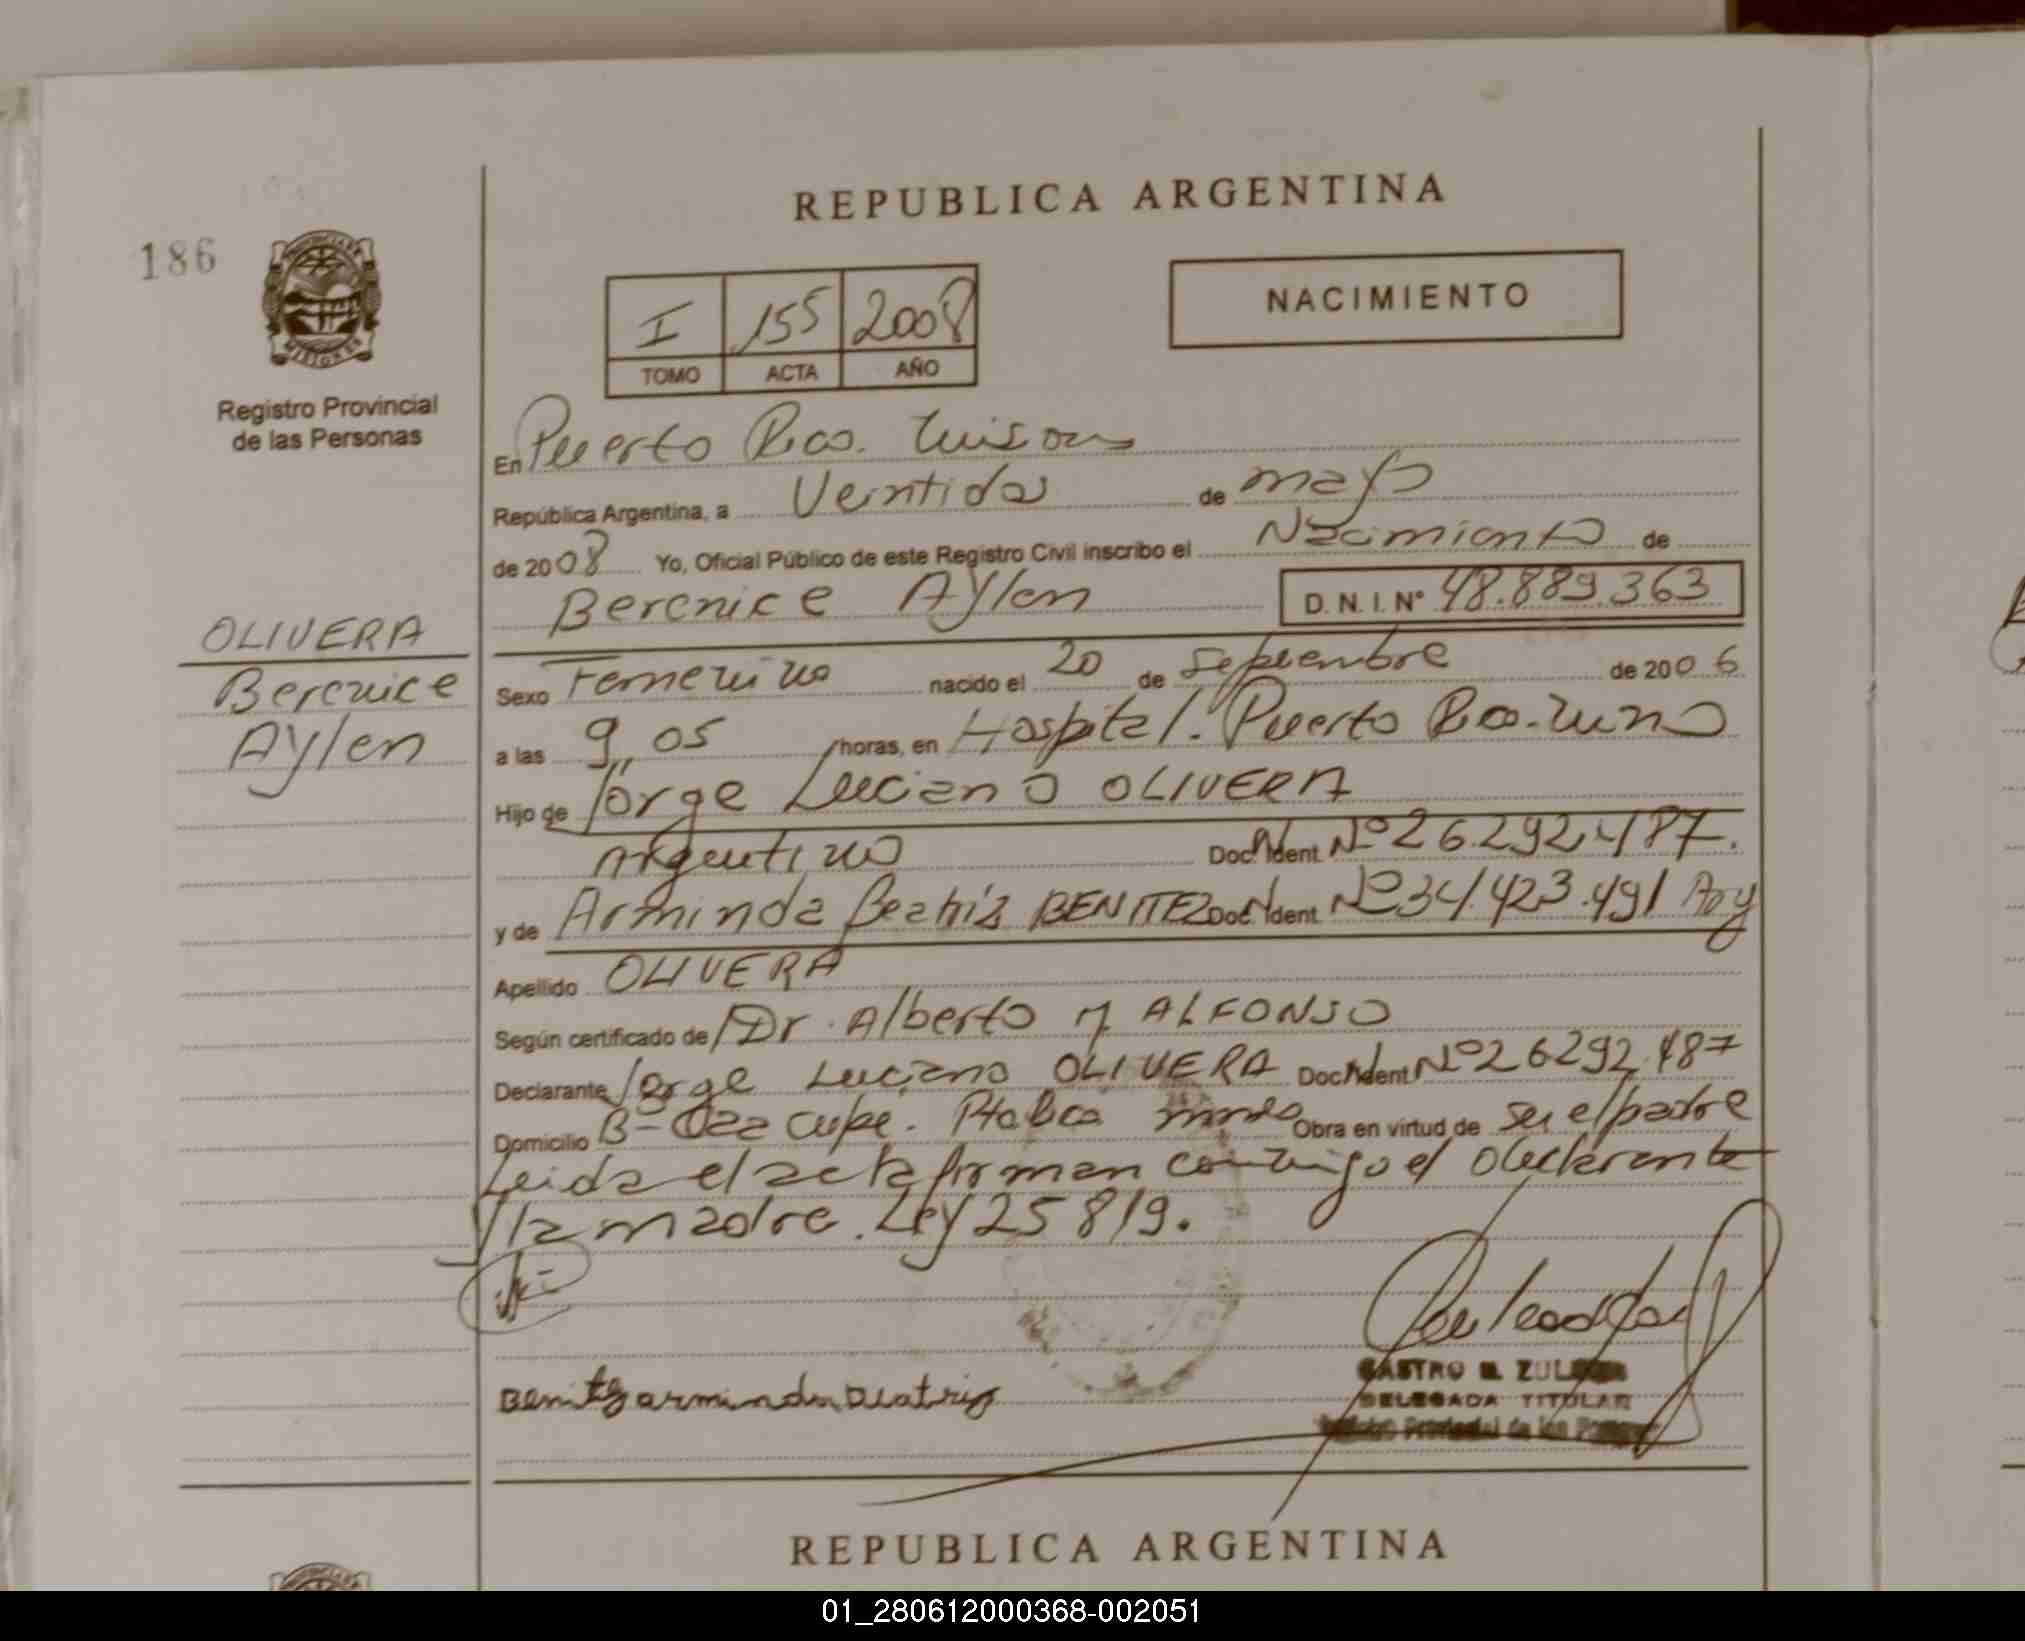 REPUBLICA ARGENTINA
186
PROVINCIA DE
MISIONES
Registro Provincial
de las Personas
I 155 2008
TOMO ACTA AÑO
NACIMIENTO
En Puerto Rico. Misiones
República Argentina, a Veintidos de mayo
de 2008 Yo, Oficial Público de este Registro Civil inscribo el Nacimiento de
Berenice Aylen D. N. I. Nº 48.889.363
OLIVERA
Berenice
Aylen
Sexo Femenino nacido el 20 de Septiembre de 2006
a las 9,05 horas, en Hospital. Puerto Rico.
Hijo de Jorge Luciano OLIVERA
Argentino Doc. Ident. Nº 26.292.487.
y de Arminda Beatriz BENITEZ Doc. Ident. Nº 34.423.491 Arg
Apellido OLIVERA
Según certificado de Dr. Alberto M ALFONSO
Declarante Jorge Luciano OLIVERA Doc. Ident. Nº 26292.487
Domicilio Obra en virtud de ser el padre
Leida el acta firman conmigo el declarante
y la madre. Ley 25819.
Benitez arminda Beatriz
CASTRO
DELEGADA TITULAR
Provincial de las
REPUBLICA ARGENTINA
01_280612000368-002051